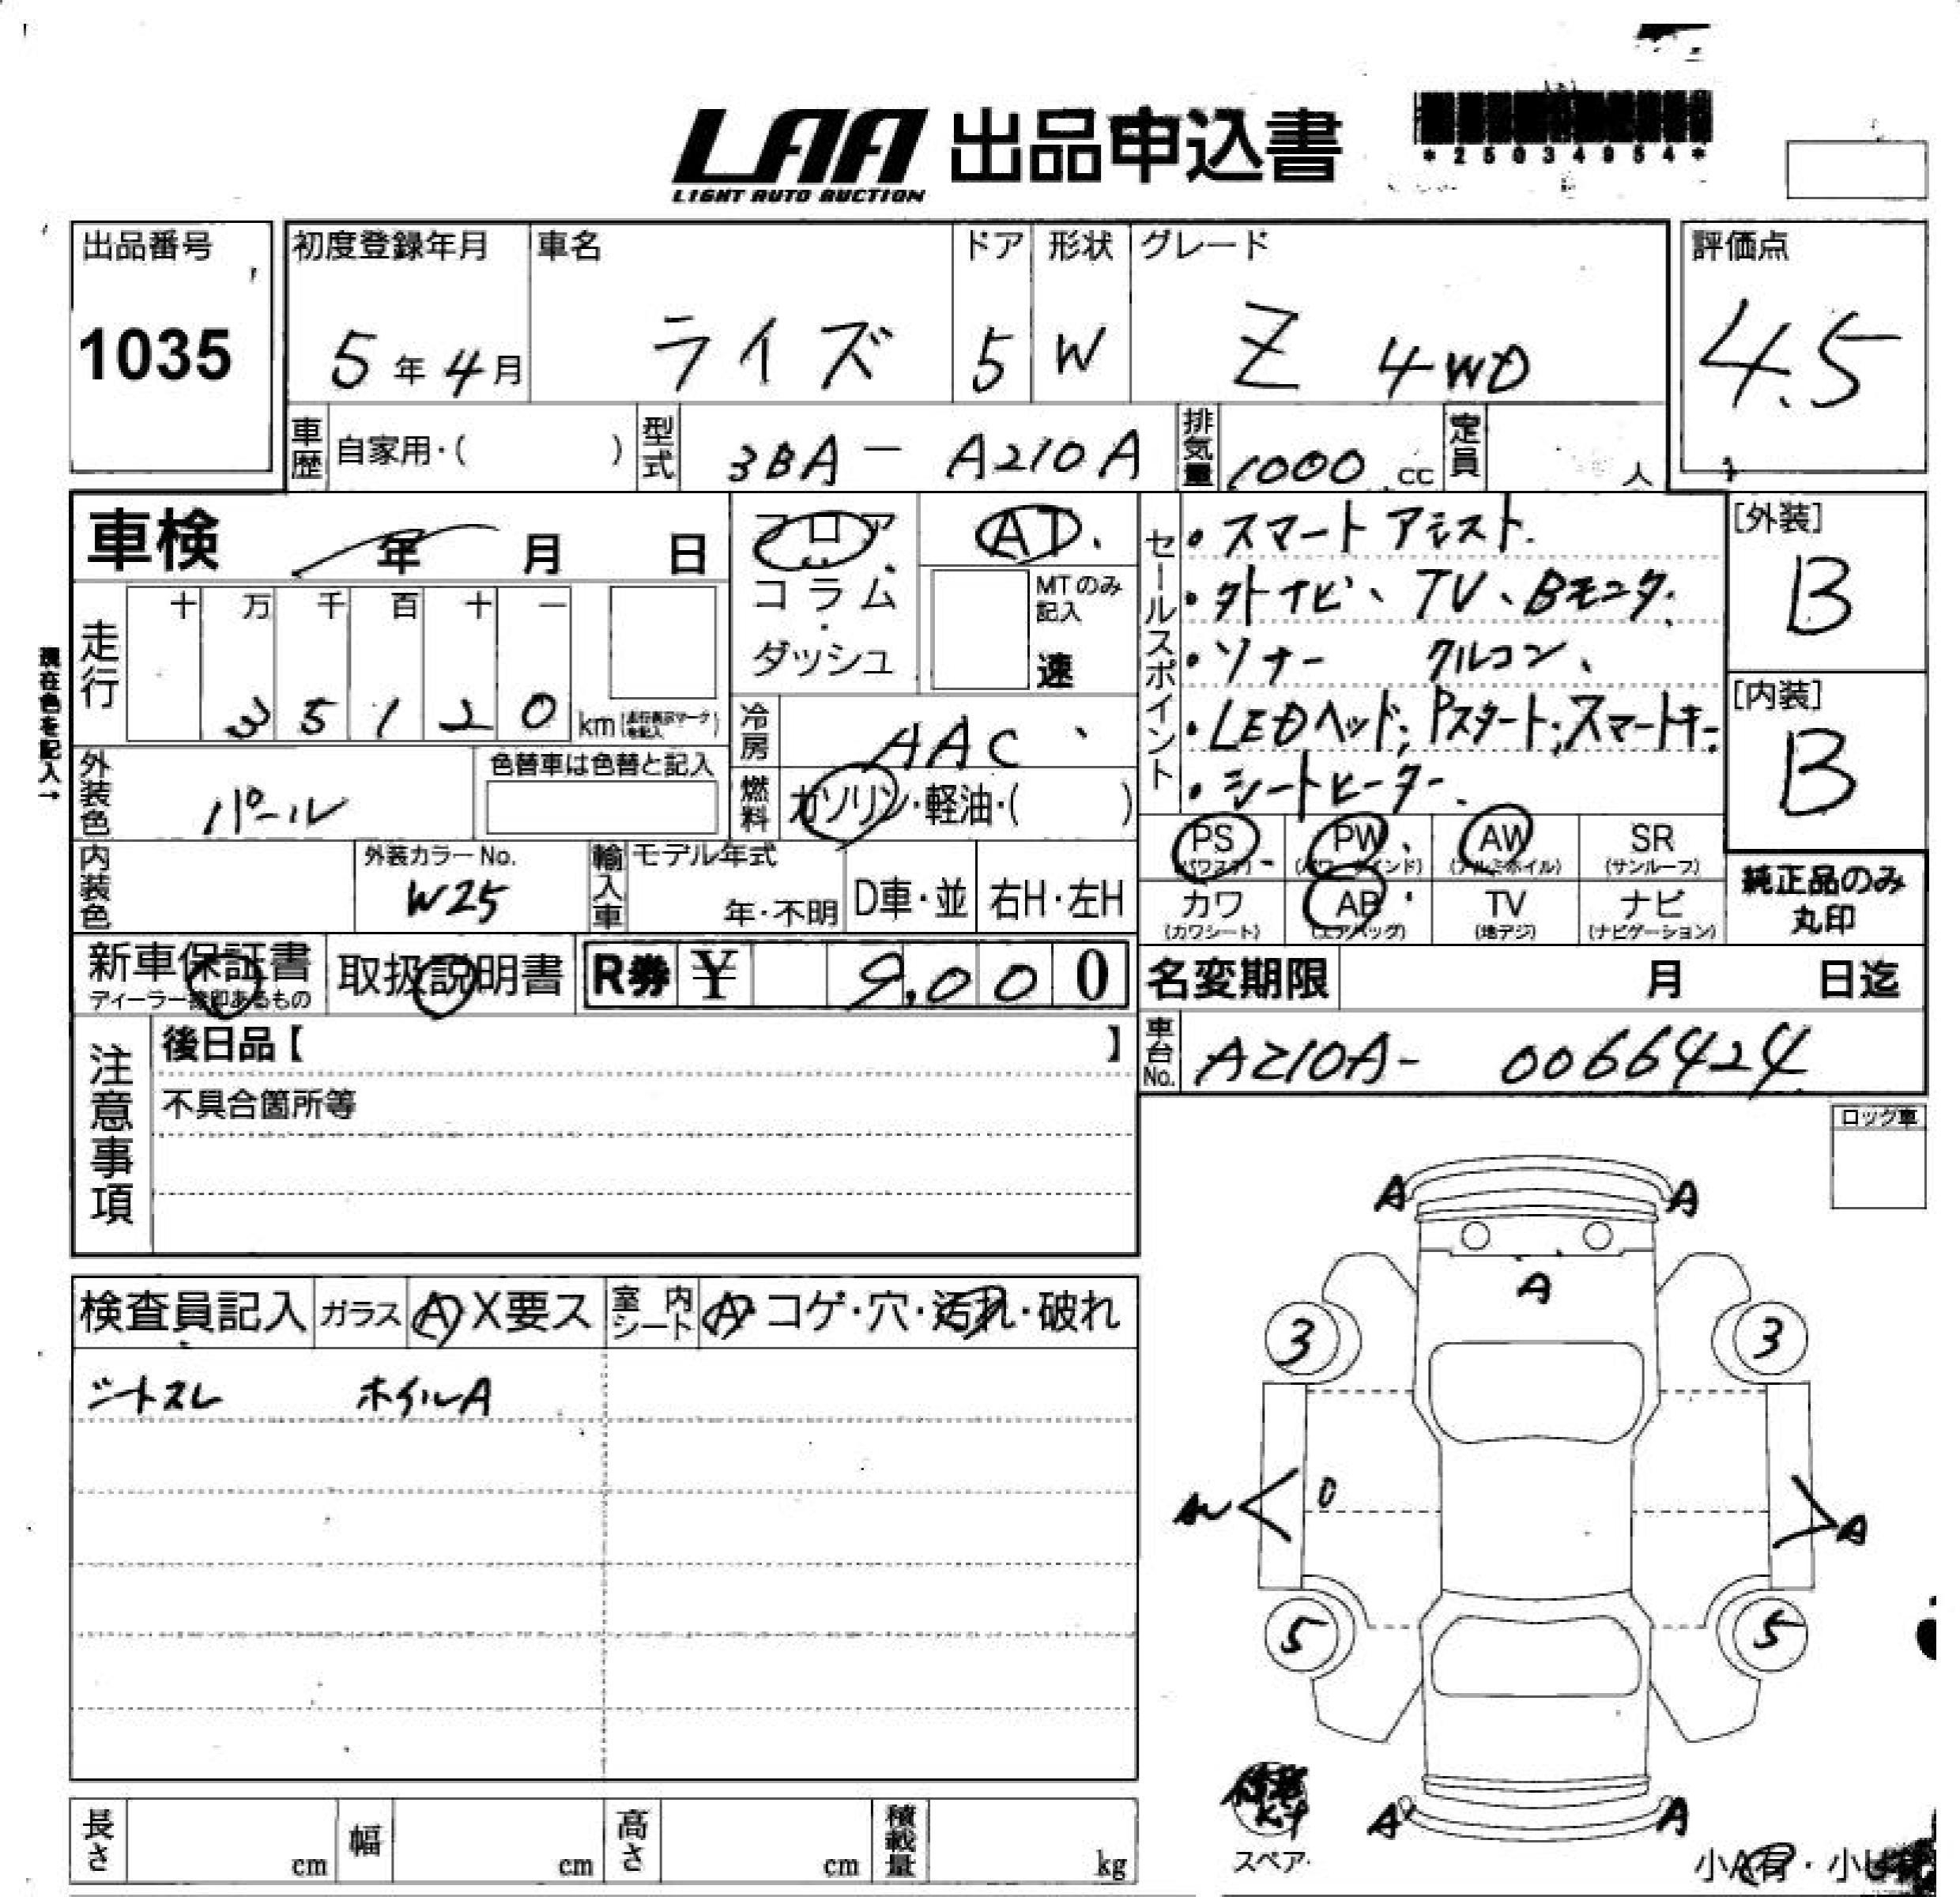 LAA 出品申込書
LIGHT AUTO AUCTION
*25034954*
出品番号
1035
初度登録年月
5年4月
車名
ライズ
ドア
5
形状
W
グレード
Z 4WD
評価点
4.5
車歴 自家用・( )
型式 3BA - A210A
排気量 1000 cc
定員 人
車検 年 月 日
フロア
コラム
・
ダッシュ
AT
MTのみ
記入
速
走行
十 万 千 百 十 一
3 5 1 2 0 km
現在色を記入→
外装色 パール
色替車は色替と記入
冷房 AAC
燃料 ガソリン・軽油・( )
内装色
外装カラーNo.
W25
輸入車
モデル年式
年・不明
D車・並
右H・左H
セールスポイント
・スマートアシスト.
・外ナビ、TV、Bモニタ.
・ソナー クルコン、
・LEDヘッド、Pスタート、スマートキー
・シートヒーター.
[外装]
B
[内装]
B
PS
(パワステ)
PW
(パワーウインド)
AW
(アルミホイル)
SR
(サンルーフ)
カワ
(カワシート)
AB
(エアバッグ)
TV
(地デジ)
ナビ
(ナビゲーション)
純正品のみ
丸印
新車保証書
取扱説明書
R券 ¥ 9,000
名変期限 月 日迄
車台No. A210A- 0066424
注意事項
後日品【 】
不具合箇所等
ロック車
検査員記入
ガラス A X要ス
室内シート A・コゲ・穴・汚れ・破れ
シートスレ ホイルA
A A
A
3 3
AW D A
5 5
A A
スペア
長さ cm
幅 cm
高さ cm
積載量 kg
小A有・小U